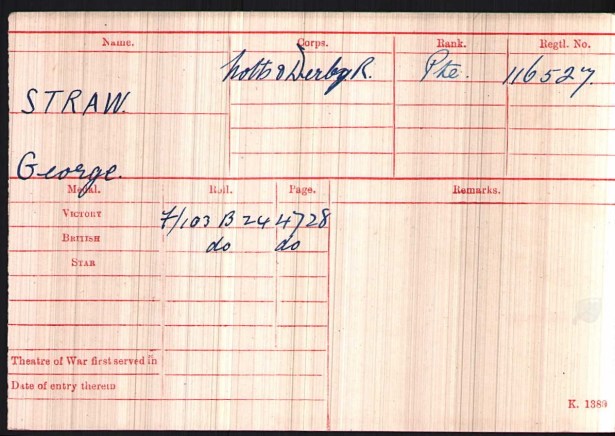 Name. Corps. Rank. Regtl. No.
Notts & Derby R. Pte. 116527.
STRAW.
George.
Medal. Roll. Page. Remarks.
VICTORY 7/103 B 24 4728
BRITISH do do
STAR
Theatre of War first served in
Date of entry therein
K. 1380